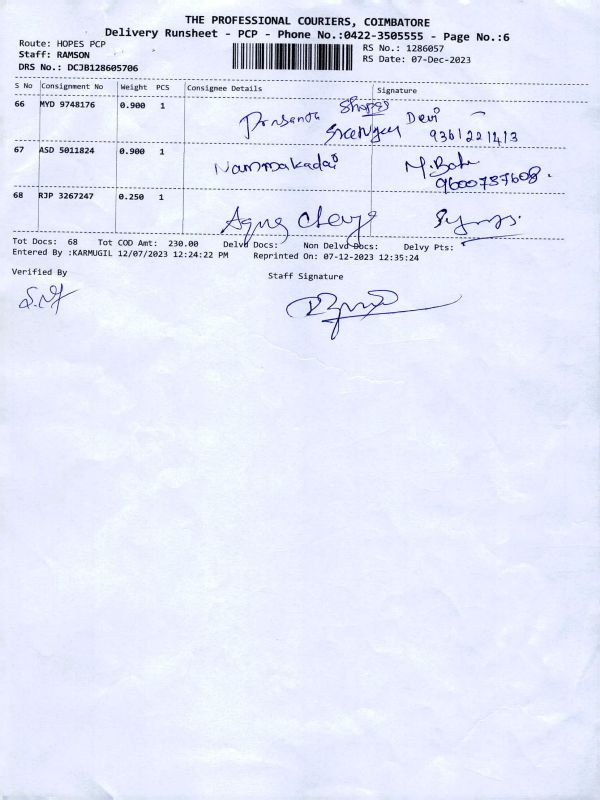 THE PROFESSIONAL COURIERS, COIMBATORE
Delivery Runsheet - PCP - Phone No.:0422-3505555 - Page No.:6
Route: HOPES PCP
RS No.: 1286057
Staff: RAMSON
RS Date: 07-Dec-2023
DRS No.: DCJB128605706
S No Consignment No Weight PCS Consignee Details Signature
66 MYD 9748176 0.900 1 Shapes
Prasanth Devi
9361221413
67 ASD 5011824 0.900 1 Nammakadai
9600737608.
68 RJP 3267247 0.250 1
Tot Docs: 68 Tot COD Amt: 230.00 Delvd Docs: Non Delvd Docs: Delvy Pts:
Entered By :KARMUGIL 12/07/2023 12:24:22 PM Reprinted On: 07-12-2023 12:35:24
Verified By
Staff Signature